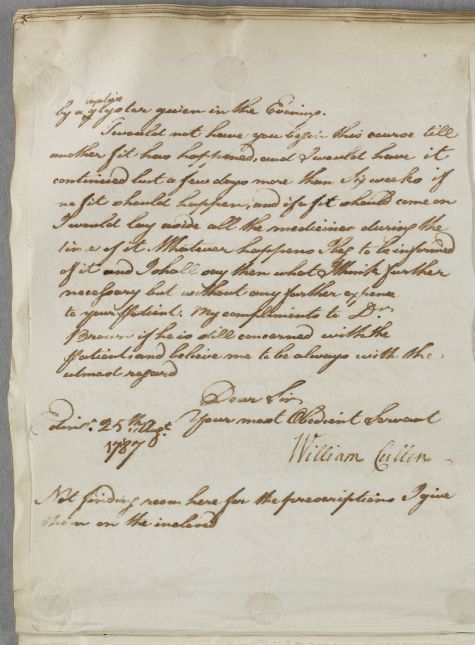 by a glyster given in the Evening.
I would not have you begin this course till
another fit has happened, and I would have it
continued but a few days more than Six weeks if
no fit should happen, and if a fit should come on
I would lay aside all the medicines during the
time of it. Whatever happens I beg to be informed
of it and I shall say then what I think further
necessary but without any further expence
to your Patient. My compliments to Dr
Brown if he is still concerned with the
Patient and believe me to be always with the
utmost regard
Dear Sir
Edinr. 25th Your most Obedient Servant
1787
William Cullen
Not finding room here for the prescriptions I give
them on the inclosed